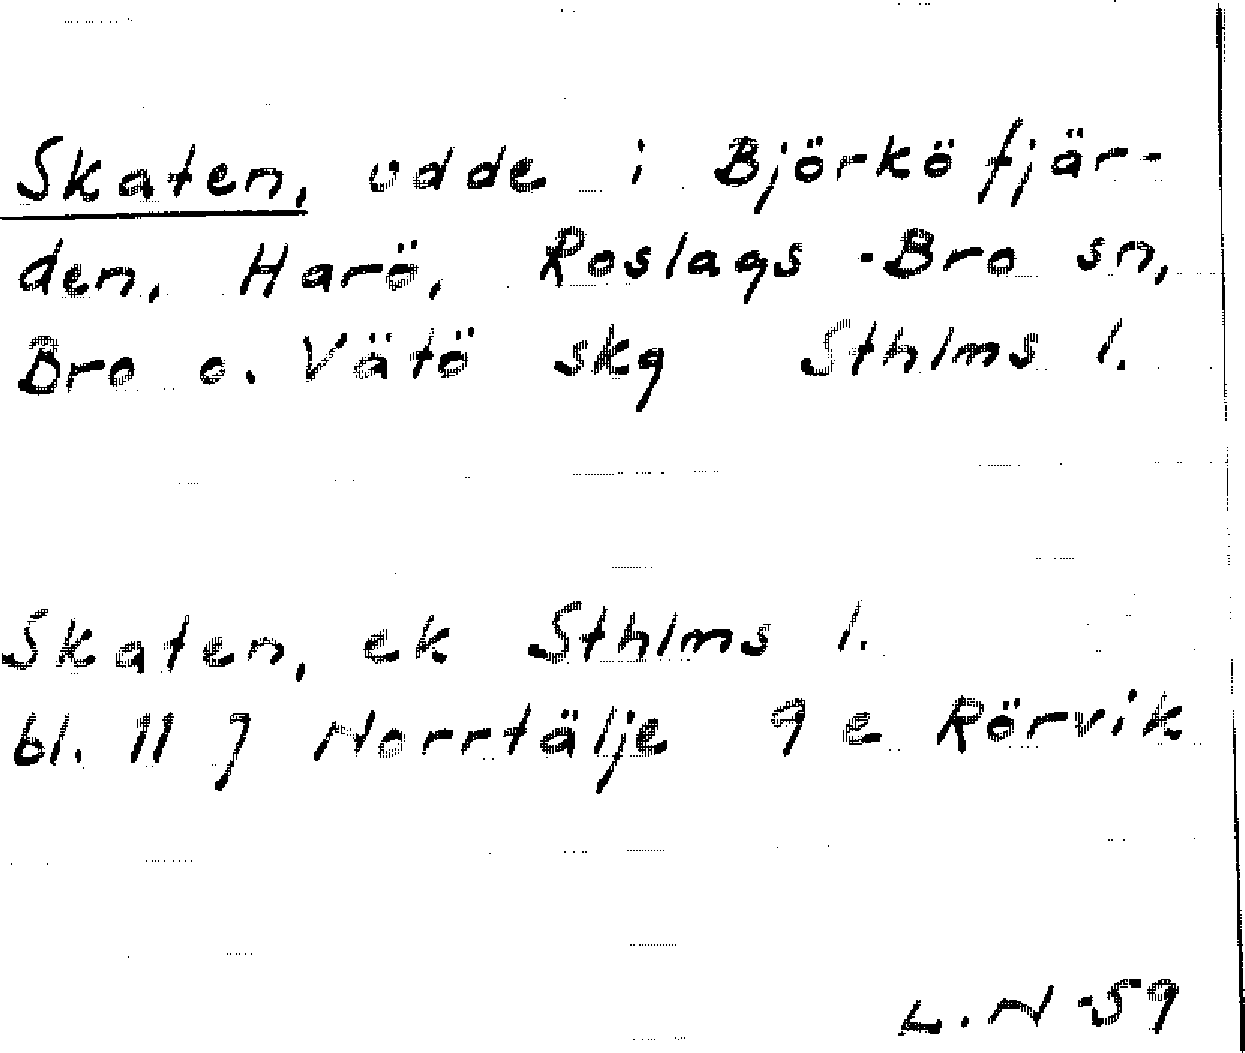 Skaten, udde i Björköfjär-
den, Harö, Roslags-Bro sn,
Bro o. Vätö skg Sthlms l.
Skaten, ek Sthlms l.
bl. 11 J Norrtälje 9 e Rörvik
L. N -59